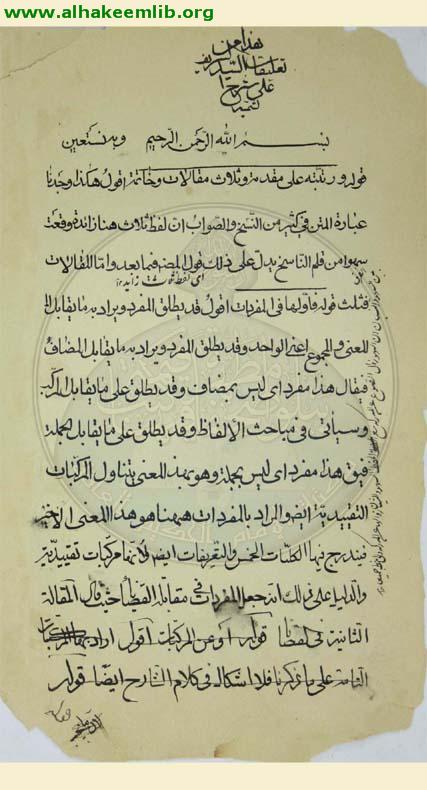 www.alhakeemlib.org
هذا من
تعليقات السيد الشريف
على شرح
الشمسية
بسم الله الرحمن الرحيم وبه نستعين
قوله ورتبته على مقدمة وثلاث مقالات وخاتمة اقول هكذا وجدنا
عبارة المتن في كثير من النسخ والصواب ان لفظ ثلاث هنا زائدة وقعت
سهوا من قلم الناسخ يدل على ذلك قول المصنف فيما بعد واما المقالات
اى لفظ زايد
فثلث قوله فاولها في المفردات اقول قد يطلق المفرد ويراد به ما يقابل المثنى
والمجموع اعنى الواحد وقد يطلق المفرد ويراد به ما يقابل المضاف
فيقال هذا مفرد اى ليس بمضاف وقد يطلق على ما يقابل المركب
وسيأتى فى مباحث الالفاظ وقد يطلق على ما يقابل الجملة
فيق هذا مفرد اى ليس بجملة وهو بهذا المعنى يتناول المركبات
التقييدية ايض والمراد بالمفردات ههنا هو هذا المعنى الاخير
فيندرج فيها الكليات الخمس والتعريفات ايض لانها مركبات تقييدية
والدليل على ذلك انه جعل المفردات في مقابلة القضايا حيث قال المقالة
الثانية فى القضايا قوله او عن المركبات اقول اراد بها المركبات
التامة على ما ذكرنا فلا اشكال فى كلام الشارح ايضا قوله